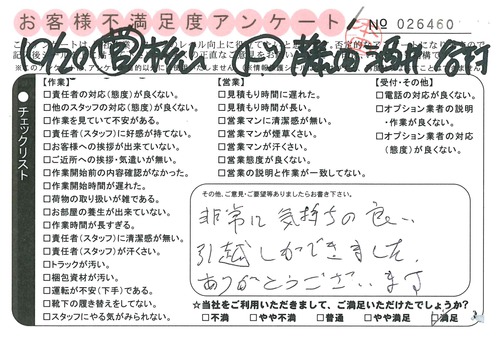 お客様不満足度アンケート
No 026460
チェックリスト
【作業】
□責任者の対応(態度)が良くない。
□他のスタッフの対応(態度)が良くない。
□作業を見ていて不安がある。
□責任者(スタッフ)に好感が持てない。
□お客様への挨拶が出来ていない。
□ご近所への挨拶・気遣いが無い。
□作業開始前の内容確認がなかった。
□作業開始時間が遅れた。
□荷物の取り扱いが雑である。
□お部屋の養生が出来ていない。
□作業時間が長すぎる。
□責任者(スタッフ)に清潔感が無い。
□責任者(スタッフ)が汗くさい。
□トラックが汚い。
□梱包資材が汚い。
□運転が不安(下手)である。
□靴下の履き替えをしてない。
□スタッフにやる気がみられない。
【営業】
□見積もり時間に遅れた。
□見積もり時間が長い。
□営業マンに清潔感が無い。
□営業マンが煙草くさい。
□営業マンが汗くさい。
□営業態度が良くない。
□営業の説明と作業が一致してない。
【受付・その他】
□電話の対応が良くない。
□オプション業者の説明
・作業が良くない。
□オプション業者の対応
(態度)が良くない。
その他、ご意見・ご要望等ありましたらお書き下さい。
非常に気持ちの良い
引越しができました。
ありがとうございます
☆当社をご利用いただきまして、ご満足いただけたでしょうか?
□不満 □やや不満 □普通 □やや満足 □満足